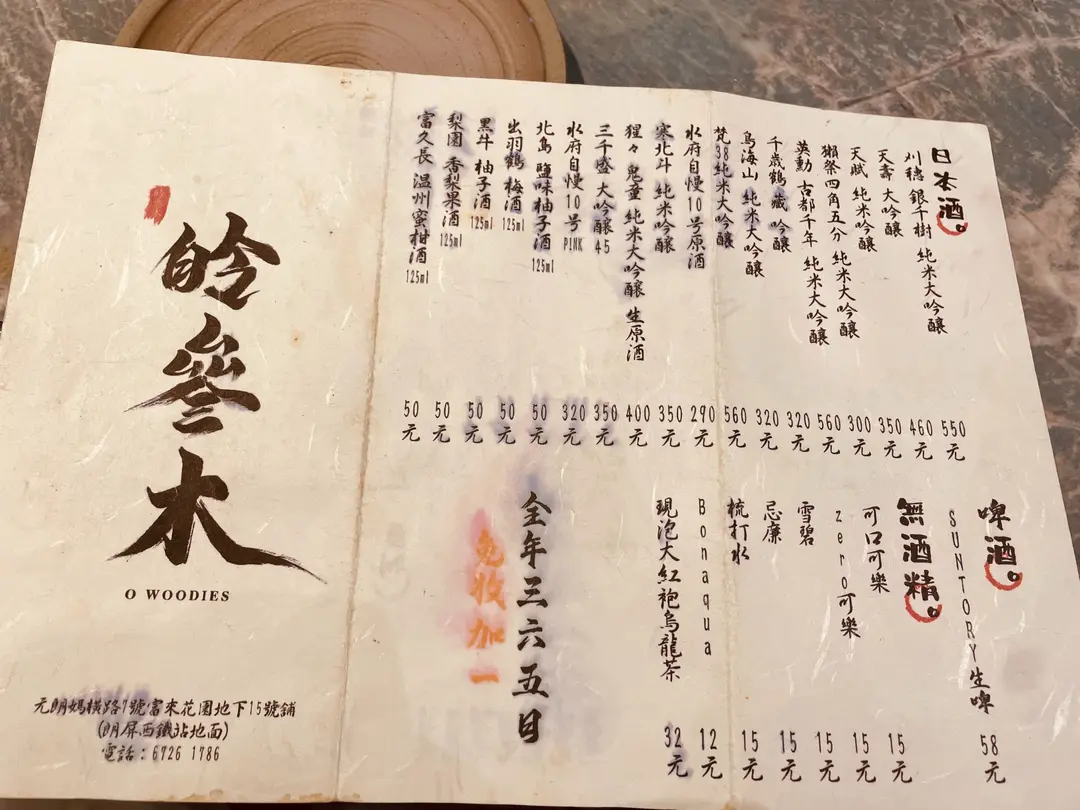 日本酒。
刈穗 銀千樹 純米大吟釀 550元
天壽 大吟釀 460元
天賦 純米吟釀 350元
獺祭四角五分 純米大吟釀 300元
英勳 古都千年 純米大吟釀 560元
千歲鶴 藏 吟釀 320元
鳥海山 純米大吟釀 320元
梵38純米大吟釀 560元
水府自慢10号原酒 290元
寒北斗 純米吟釀 350元
猩々 鬼童 純米大吟釀 生原酒 400元
三千盛 大吟釀45 350元
水府自慢10号PINK 320元
北島 鹽味柚子酒 125ml 50元
出羽鶴 梅酒 125ml 50元
黑牛 柚子酒 125ml 50元
梨園 香梨果酒 125ml 50元
富久長 温州蜜柑酒 125ml 50元
啤酒。
SUNTORY生啤 58元
無酒精。
可口可樂 15元
zero可樂 15元
雪碧 15元
忌廉 15元
梳打水 15元
Bonaqua 12元
現泡大紅袍烏龍茶 32元
全年三六五日
免收加一
皊參木
O WOODIES
元朗媽橫路7號富來花園地下15號舖
(朗屏西鐵站地面)
電話：6726 1786